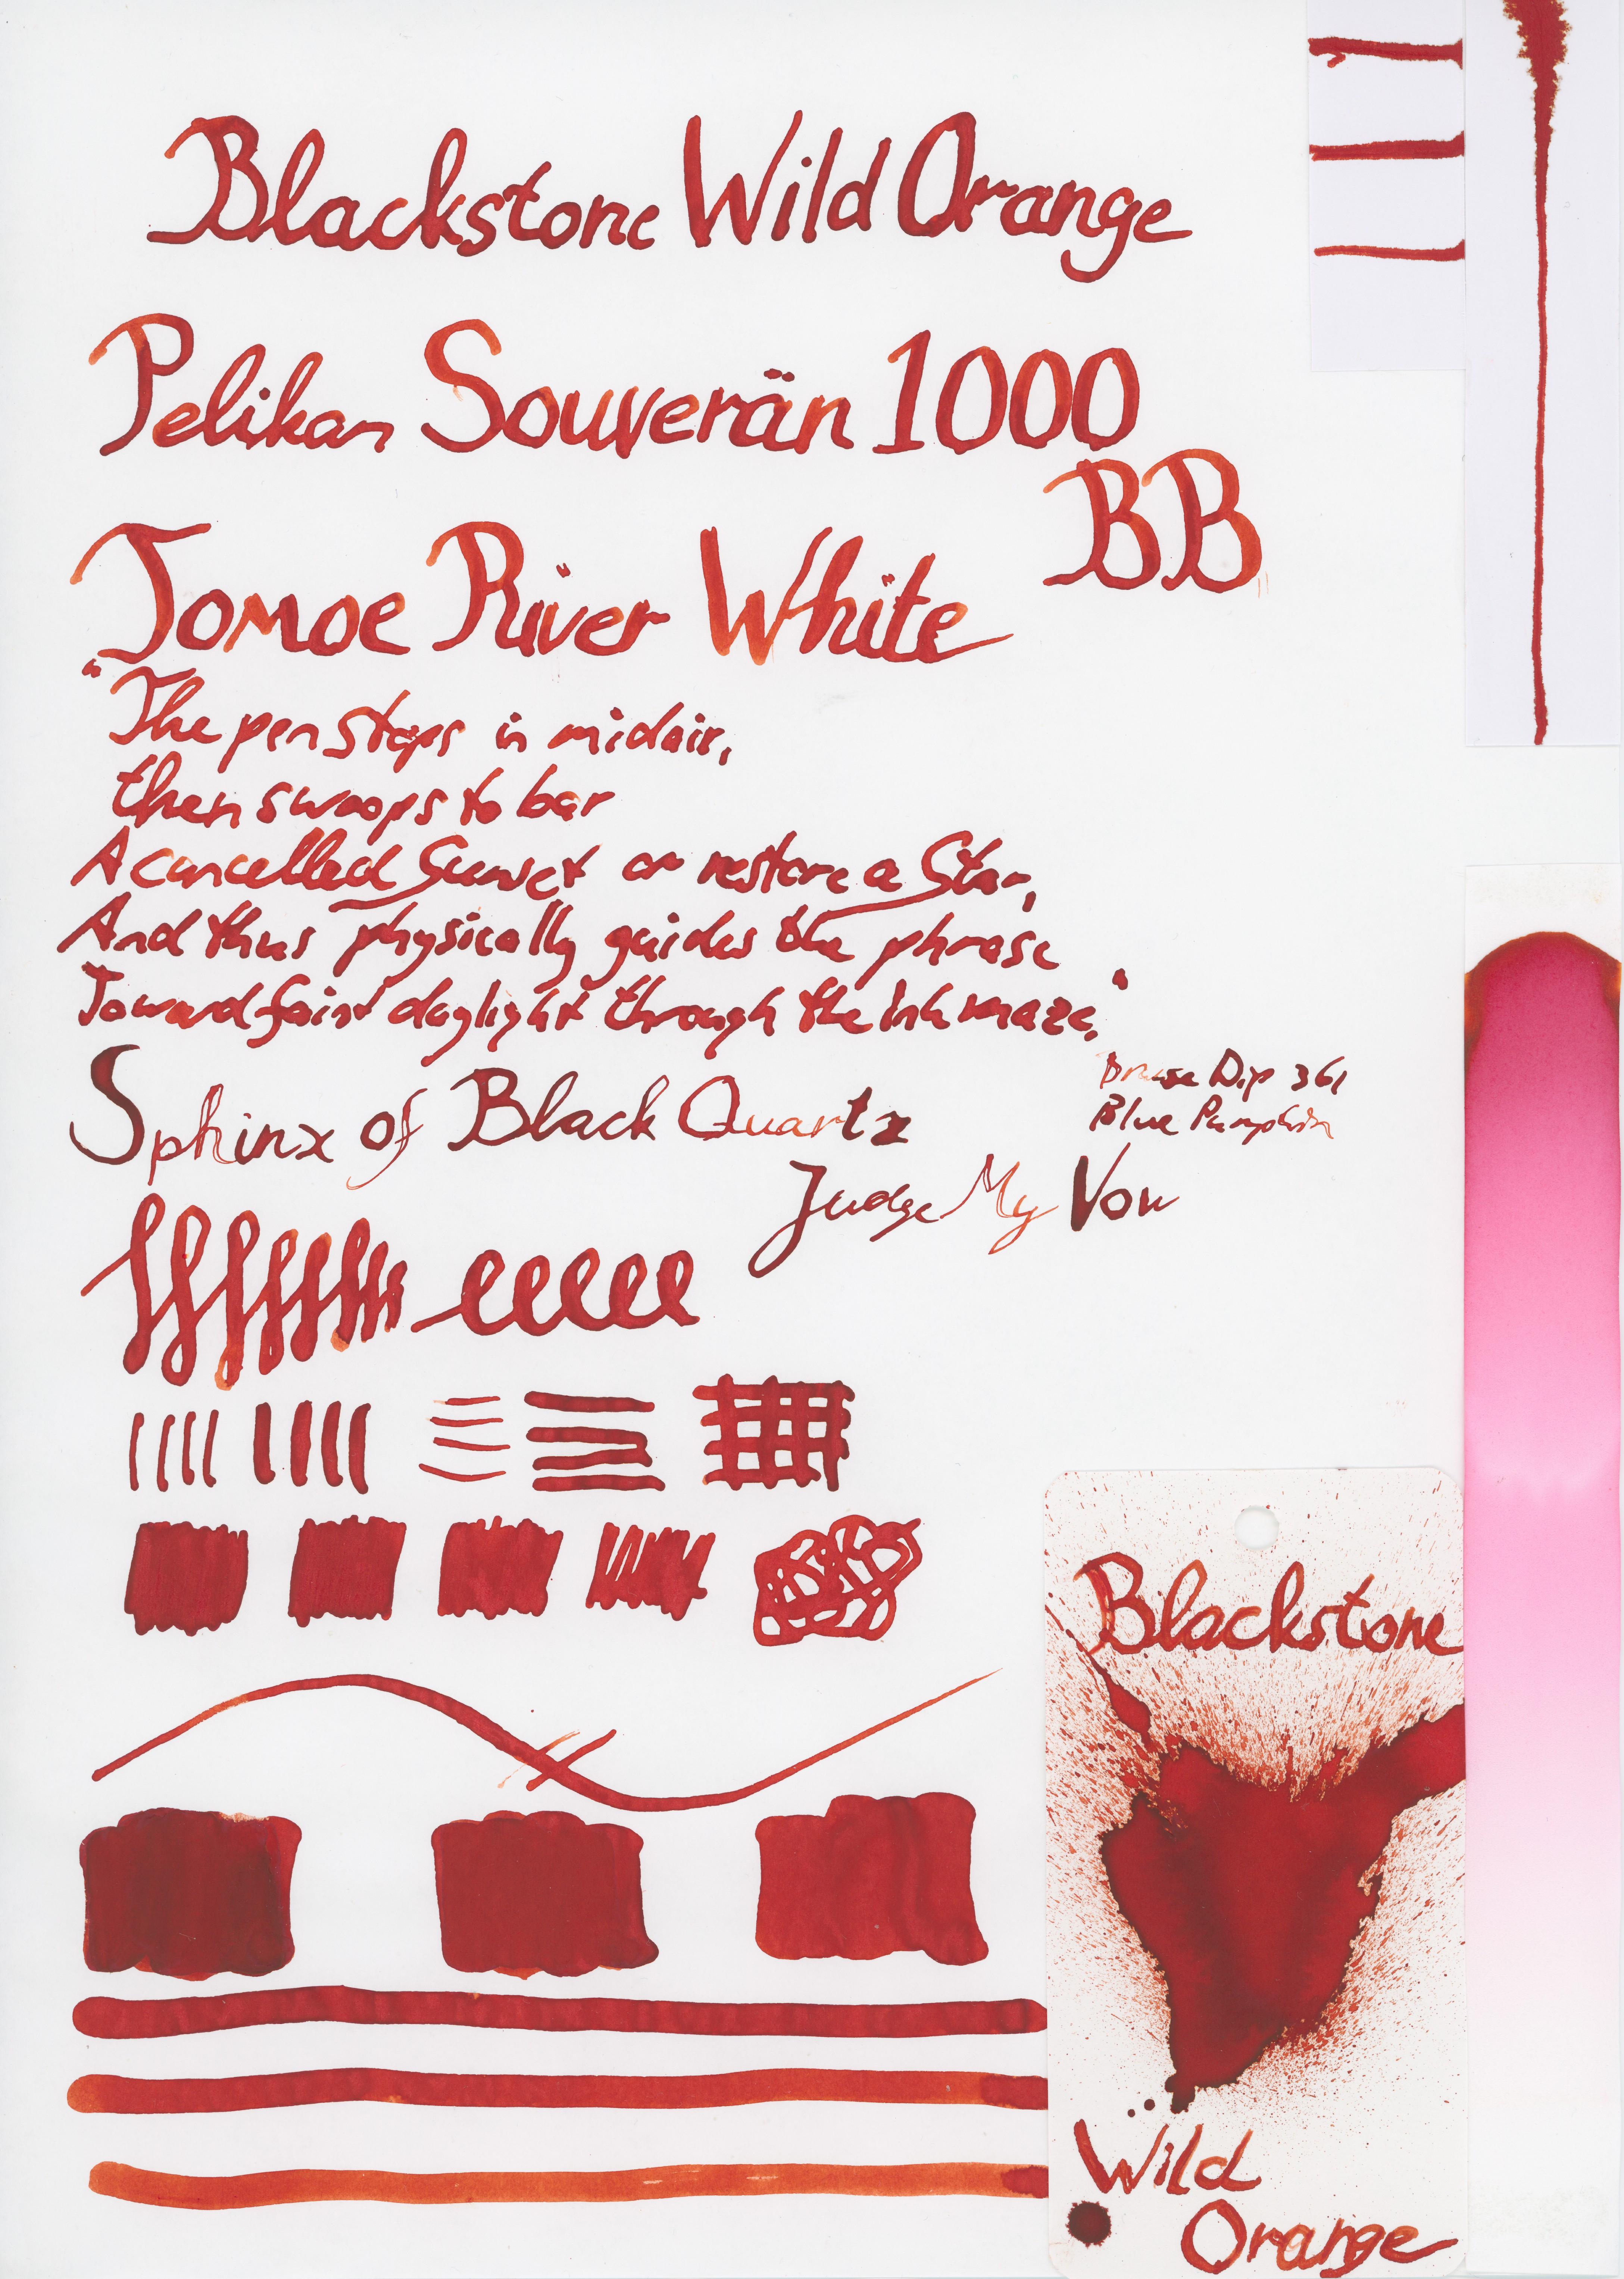 Blackstone Wild Orange
Pelikan Souverän 1000
BB
Tomoe River White
"The pen stops in midair,
then swoops to bar
A cancelled Sunset or restore a Star,
And thus physically guides the phrase
Toward faint daylight through the Ink maze."
Sphinx of Black Quartz
Judge My Vow
Brause Dip 361
Blue Pumpkin
Blackstone
Wild
Orange